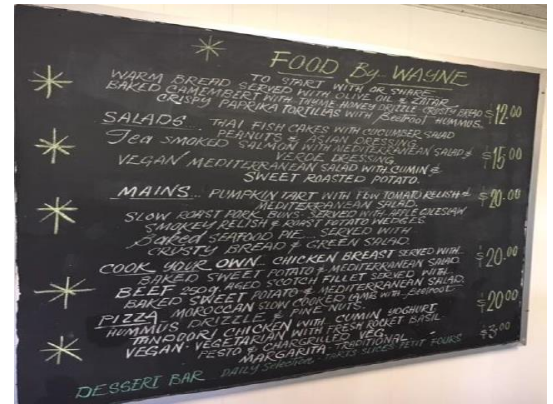 FOOD By WAYNE
TO START WITH OR SHARE
WARM BREAD SERVED WITH OLIVE OIL & ZATAR
BAKED CAMEMBERT WITH THYME HONEY DRIZZLE CRUSTY BREAD
CRISPY PAPRIKA TORTILLAS WITH BEETROOT HUMMUS $12.00
SALADS... THAI FISH CAKES WITH CUCUMBER SALAD
PEANUTS & ASIAN DRESSING
Tea SMOKED SALMON WITH MEDITERRANEAN SALAD & $15.00
VERDE DRESSING
VEGAN MEDITERRANEAN SALAD WITH CUMIN &
SWEET ROASTED POTATO.
MAINS... PUMPKIN TART WITH TOMATO RELISH & $20.00
MEDITERRANEAN SALAD
SLOW ROAST PORK BUNS SERVED WITH APPLE
SMOKEY RELISH & ROAST POTATO WEDGES
Baked SEAFOOD PIE SERVED WITH
CRUSTY BREAD & GREEN SALAD
COOK YOUR OWN CHICKEN BREAST SERVED WITH $20.00
BAKED SWEET POTATO & MEDITERRANEAN SALAD
BEEF 250g AGED SCOTCH FILLET SERVED WITH
BAKED SWEET POTATO & MEDITERRANEAN SALAD
PIZZA MOROCCAN SLOW COOKED LAMB WITH BEETROOT $20.00
HUMMUS DRIZZLE & PINE NUTS.
TANDOORI CHICKEN WITH CUMIN YOGHURT
VEGAN. VEGETARIAN WITH FRESH ROCKET BASIL $3.00
PESTO & CHARGRILLED VEG
MARGARITA - TRADITIONAL
DESSERT BAR DAILY SELECTION TARTS SLICES PETIT FOURS